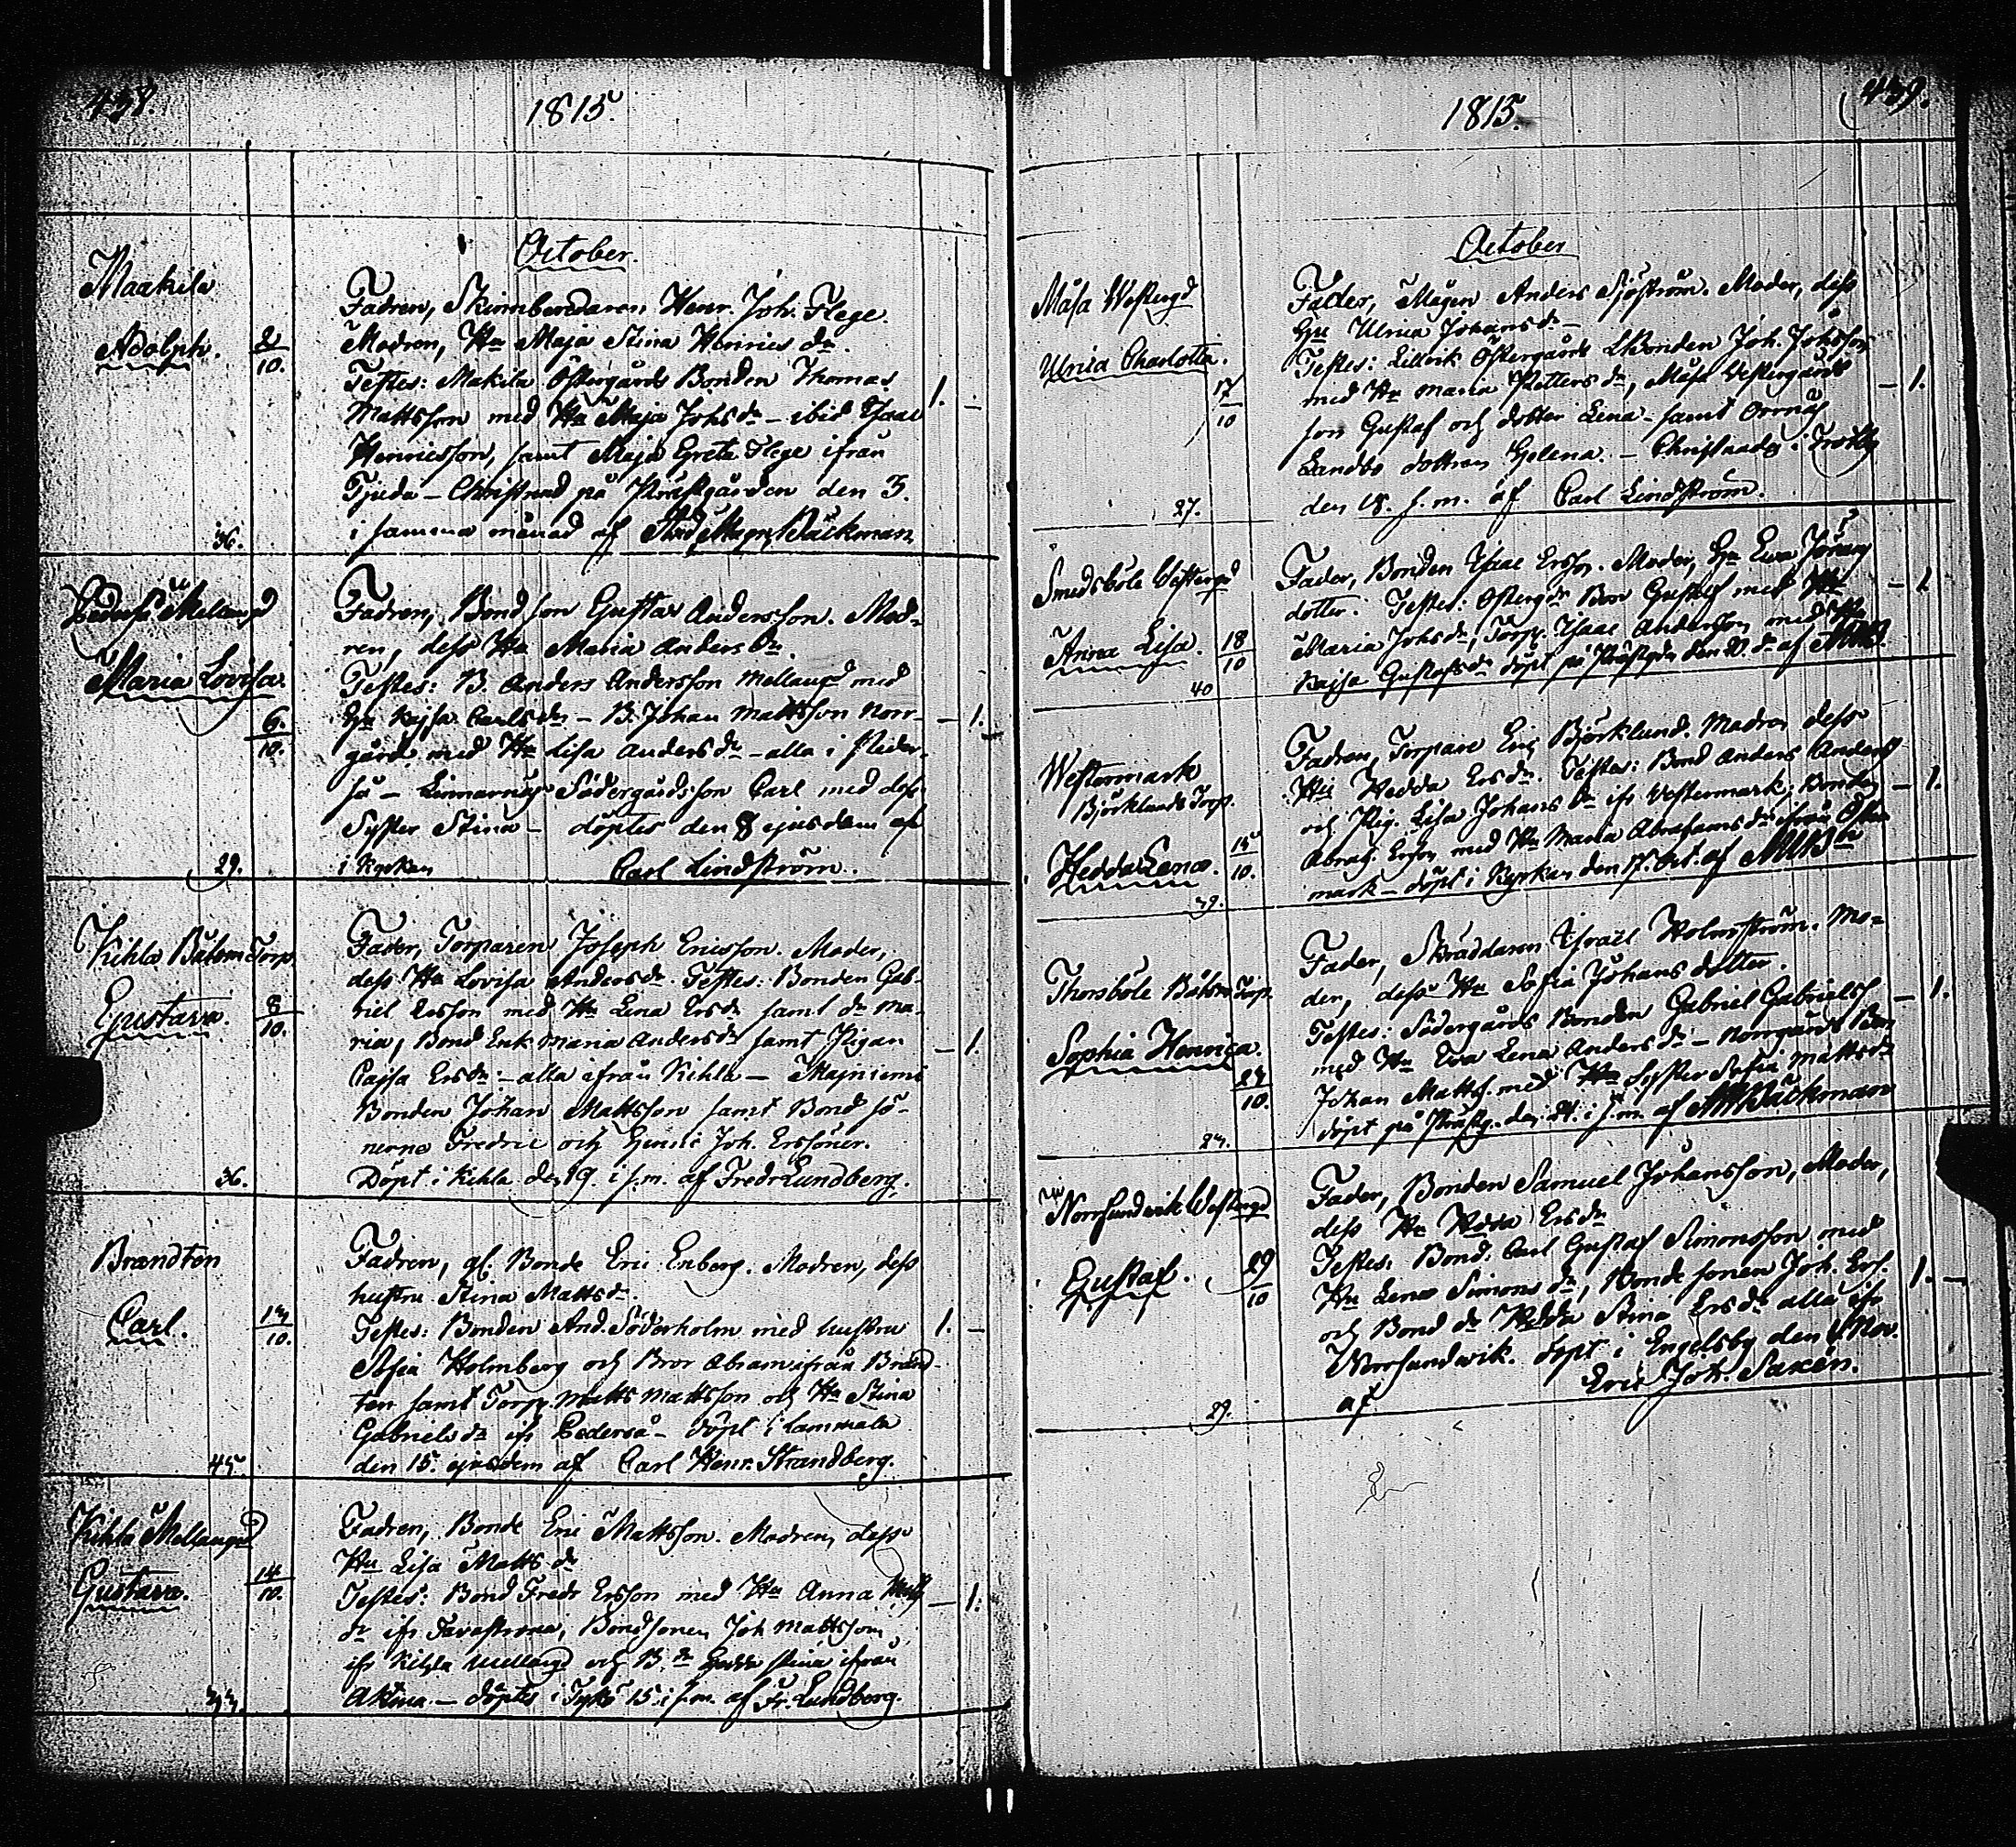 438.
1815.
October.
Maakila
Adolph. 2/10.
36.
Fadren, Skinnberedaren Henr. Joh. Flege.
Modren, Hu Maja Stina Henrics dr.
Testes: Makila Östergårds Bonden Thomas
Mattsson med Hu Maja Johs dr – ibid. Isaac
Henricsson, samt Maja Greta Flege ifrån
Tjuda – Christnad på Prästgården den 3.
i samma månad af And. Magn. Bäckman
1. –
Pederså Mellangd
Maria Lovisa.
6./10.
29.
Fadren, Bondson Gustav Andersson. Mod-
ren, dess Hu Maria Anders dr.
Testes: B. Anders Andersson Mellangd med
Hu Kajsa Carls dr – B. Johan Mattsson Norr-
gård med Hu Lisa Anders dr – alla i Peder-
så – Linnarnäs Södergårdsson Carl med dess
Syster Stina – döptes den 8 ejusdem af
i Kyrkan Carl Lindström.
– 1.
Kihla Böhm Torp
Gustava. 8/10.
36.
Fader, Torparen Joseph Ericsson. Moder,
dess Hu Lovisa Anders dr. Testes: Bonden Gab-
riel Ersson med Hu Lena Ers dr samt dr Ma-
ria, Bond Enk. Maria Anders dr samt Pigan
Cajsa Ers dr – alla ifrån Kihla –
Bonden Johan Mattsson samt Bond sö-
nerne Fredric och Joh. Erssöner.
Döpt i Kihla den 19. i s.m. af Fredr Lundberg.
– 1.
Brandten
Carl. 13/10.
45.
Fadren, gl. Bonde Eric Enberg. Modren, dess
hustru Stina Matts dr.
Testes: Bonden And. Söderholm med hustru
Sofia Holmberg och Bror Abram ifrån Brand-
ten samt Torp. Matts Mattsson och Hu Stina
Gabriels dr ifr Pederså – döpt i Lammala
den 15. ejusdem af Carl Henr. Strandberg.
1. –
Kihla Mellangd
Gustava. 14/10.
33.
Fadren, Bonde Eric Mattsson. Modren, dess
Hu Lisa Matts dr
Testes: Bond Fredr Ersson med Hu Anna Matts
dr ifr Bondsonen Joh Mattsson
ifr Kihla Mellangd och B. dr Hedda Stina ifrån
– döptes i Tykö 15. i s.m. af Fr. Lundberg.
– 1.
439.
1815.
October
Måsa Westergd
Ulrica Charlotta.
17/10
27.
Fader, Mågen Anders Sjöström. Moder, dess
Hu Ulrica Johans dr –
Testes: Lillvik Östergårds LBonden Joh. Johsson
med Hu Maria Petters dr, Måsa Westergårds
son Gustaf och dotter Lena – samt
Landbo dottren Helena. – Christnades i
den 18. s.m. af Carl Lindström.
– 1.
Smedsböle Westergd
Anna Lisa. 18/10
40
Fader, Bonden Isaac Ersson. Moder, Hu Ewa Johans
dotter. Testes: Östergds Bon Gustaf med Hu
Maria Johs dr, Torp. Isaac Andersson med Hu
Kajsa Gustafs dr döpt på Prästgdn den 20. dr af AMB.
– 1
Westermark
Björklunds Torp.
Hedda Lena. 15/10.
39.
Fadren, Torpare Eric Björklund. Modren dess
Hu Hedda Ers dr. Testes: Bond Anders Anders
och Pig. Lisa Johans dr ifr Westermark, Bonden
Abrah. Ersson med Hu Maria Abrahams dr ifrån Öster-
mark – döpt i Kyrkan den 17. Oct. af AMBn
– 1.
Thorsböle Böhm Torp.
Sophia Henrica.
24/10.
24.
Fader, Skräddaren Israel Holmström. Mo-
den, dess Hu Sofia Johans dotter.
Testes: Södergårds Bonden Gabriel Gabrielss
med Hu Ewa Lena Anders dr – Norrgårds Bon
Johan Matts. med Hu Syster Sofia Mattsdr
döpt på Prästg. den 24. i s.m. af AMBäckman
– 1.
Norrsundwik Westergd
Gustaf. 29/10
29.
Fader, Bonden Samuel Johansson, Moder,
dess Hu Hedda Ers dr
Testes: Bond. Carl Gustaf Simonsson med
Hu Lena Simons dr, Bonde sonen Joh. Ers.
och Bond dr Hedda Stina Ers dr alla ifr
Norrsundwik. döpt i Engelsby den Nov.
af Eric Joh. Saxén.
1. –